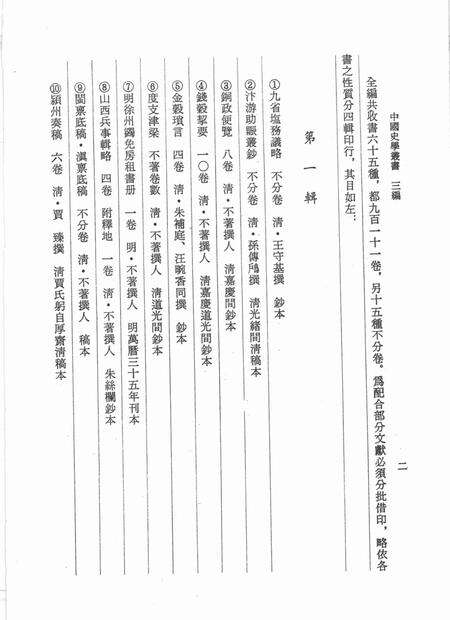 中國史學叢書　三編
二
全編共收書六十五種，都九百一十一卷。另十五種不分卷。爲配合部分文獻必須分批借印，略依各
書之性質分四輯印行，其目如左：
第　一　輯
①九省塩務議略　不分卷　清・王守基撰　鈔本
②汴游助賑叢鈔　不分卷　清・孫傳鴅撰　清光緒間清稿本
③銅政便覽　八卷　清・不著撰人　清嘉慶間鈔本
④錢穀挈要　一〇卷　清・不著撰人　清嘉慶道光間鈔本
⑤金穀瑣言　四卷　清・朱補庭、汪晼香同撰　鈔本
⑥度支津梁　不著卷數　清・不著撰人　清道光間鈔本
⑦明徐州蠲免房租書册　一卷　明・不著撰人　明萬曆三十五年刊本
⑧山西兵事輯略　四卷　附釋地　一卷　清・不著撰人　朱絲欄鈔本
⑨閩稟底稿・滇稟底稿　不分卷　清・不著撰人　稿本
⑩潁州奏稿　六卷　清・賈　臻撰　清賈氏躬自厚齋清稿本